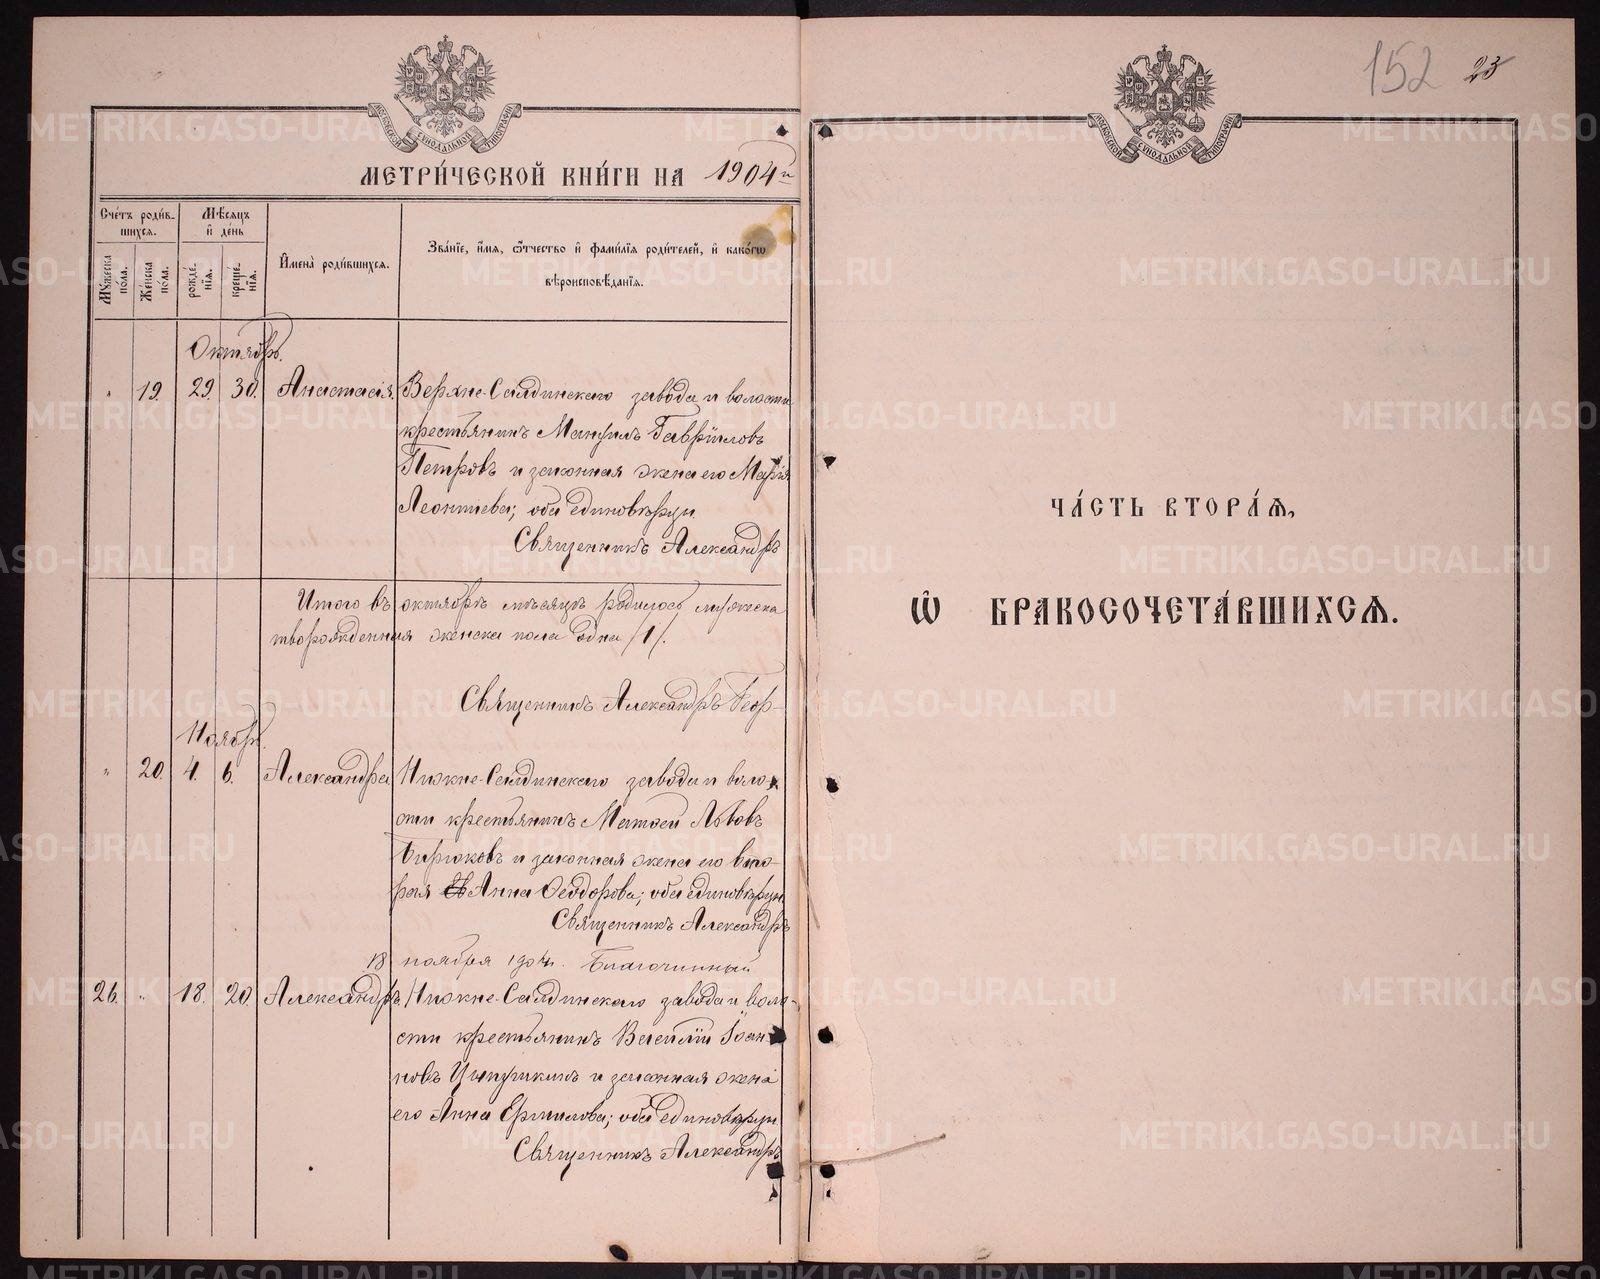 МОСКОВСКОЙ СѴНОДАЛЬНОЙ ТИПОГРАФІИ
МЕТРИ́ЧЕСКОЙ КНИ́ГИ НА 1904 г.
Сче́тъ роди́в-
шихся.
Мꙋжеска по́ла.
Же́нска по́ла.
Мѣ́сяцъ
и҆ де́нь
рожде́-
нїя.
креще́-
нїя.
И҆мена̀ роди́вшихся.
Зва́нїе, и҆́мя, ѻ҆́тчество и҆ фами́лїя роди́телей, и҆ како́гѡ
вѣроисповѣ́данїя.
Октябрь.
„ 19. 29. 30. Анастасія. Верхне-Салдинскаго завода и волости
крестьянинъ Мануилъ Гавріиловъ
Петровъ и законная жена его Марія
Леонтиева; оба единовѣрцы.
Священникъ Александръ
Итого въ октябрѣ мѣсяцѣ родилось мужеска
творожденная женска пола одна /1/.
Священникъ Александръ Геор-
Ноябрь.
„ 20. 4. 6. Александра Нижне-Салдинскаго завода и воло-
сти крестьянинъ Матѳей Львовъ
Бирюковъ и законная жена его вто-
рая Анна Ѳеодорова; оба единовѣрцы.
Священникъ Александръ
18 ноября 1904 г. Благочинный
26. „ 18. 20. Александръ Нижне-Салдинскаго завода и воло-
сти крестьянинъ Василій Іоан-
новъ Цыпушкинъ и законная жена
его Анна Ермилова; оба единовѣрцы.
Священникъ Александръ
152 23
МОСКОВСКОЙ СѴНОДАЛЬНОЙ ТИПОГРАФІИ
ЧА́СТЬ ВТОРА́Я,
Ѽ БРАКОСОЧЕТА́ВШИХСЯ.
METRIKI.GASO-URAL.RU